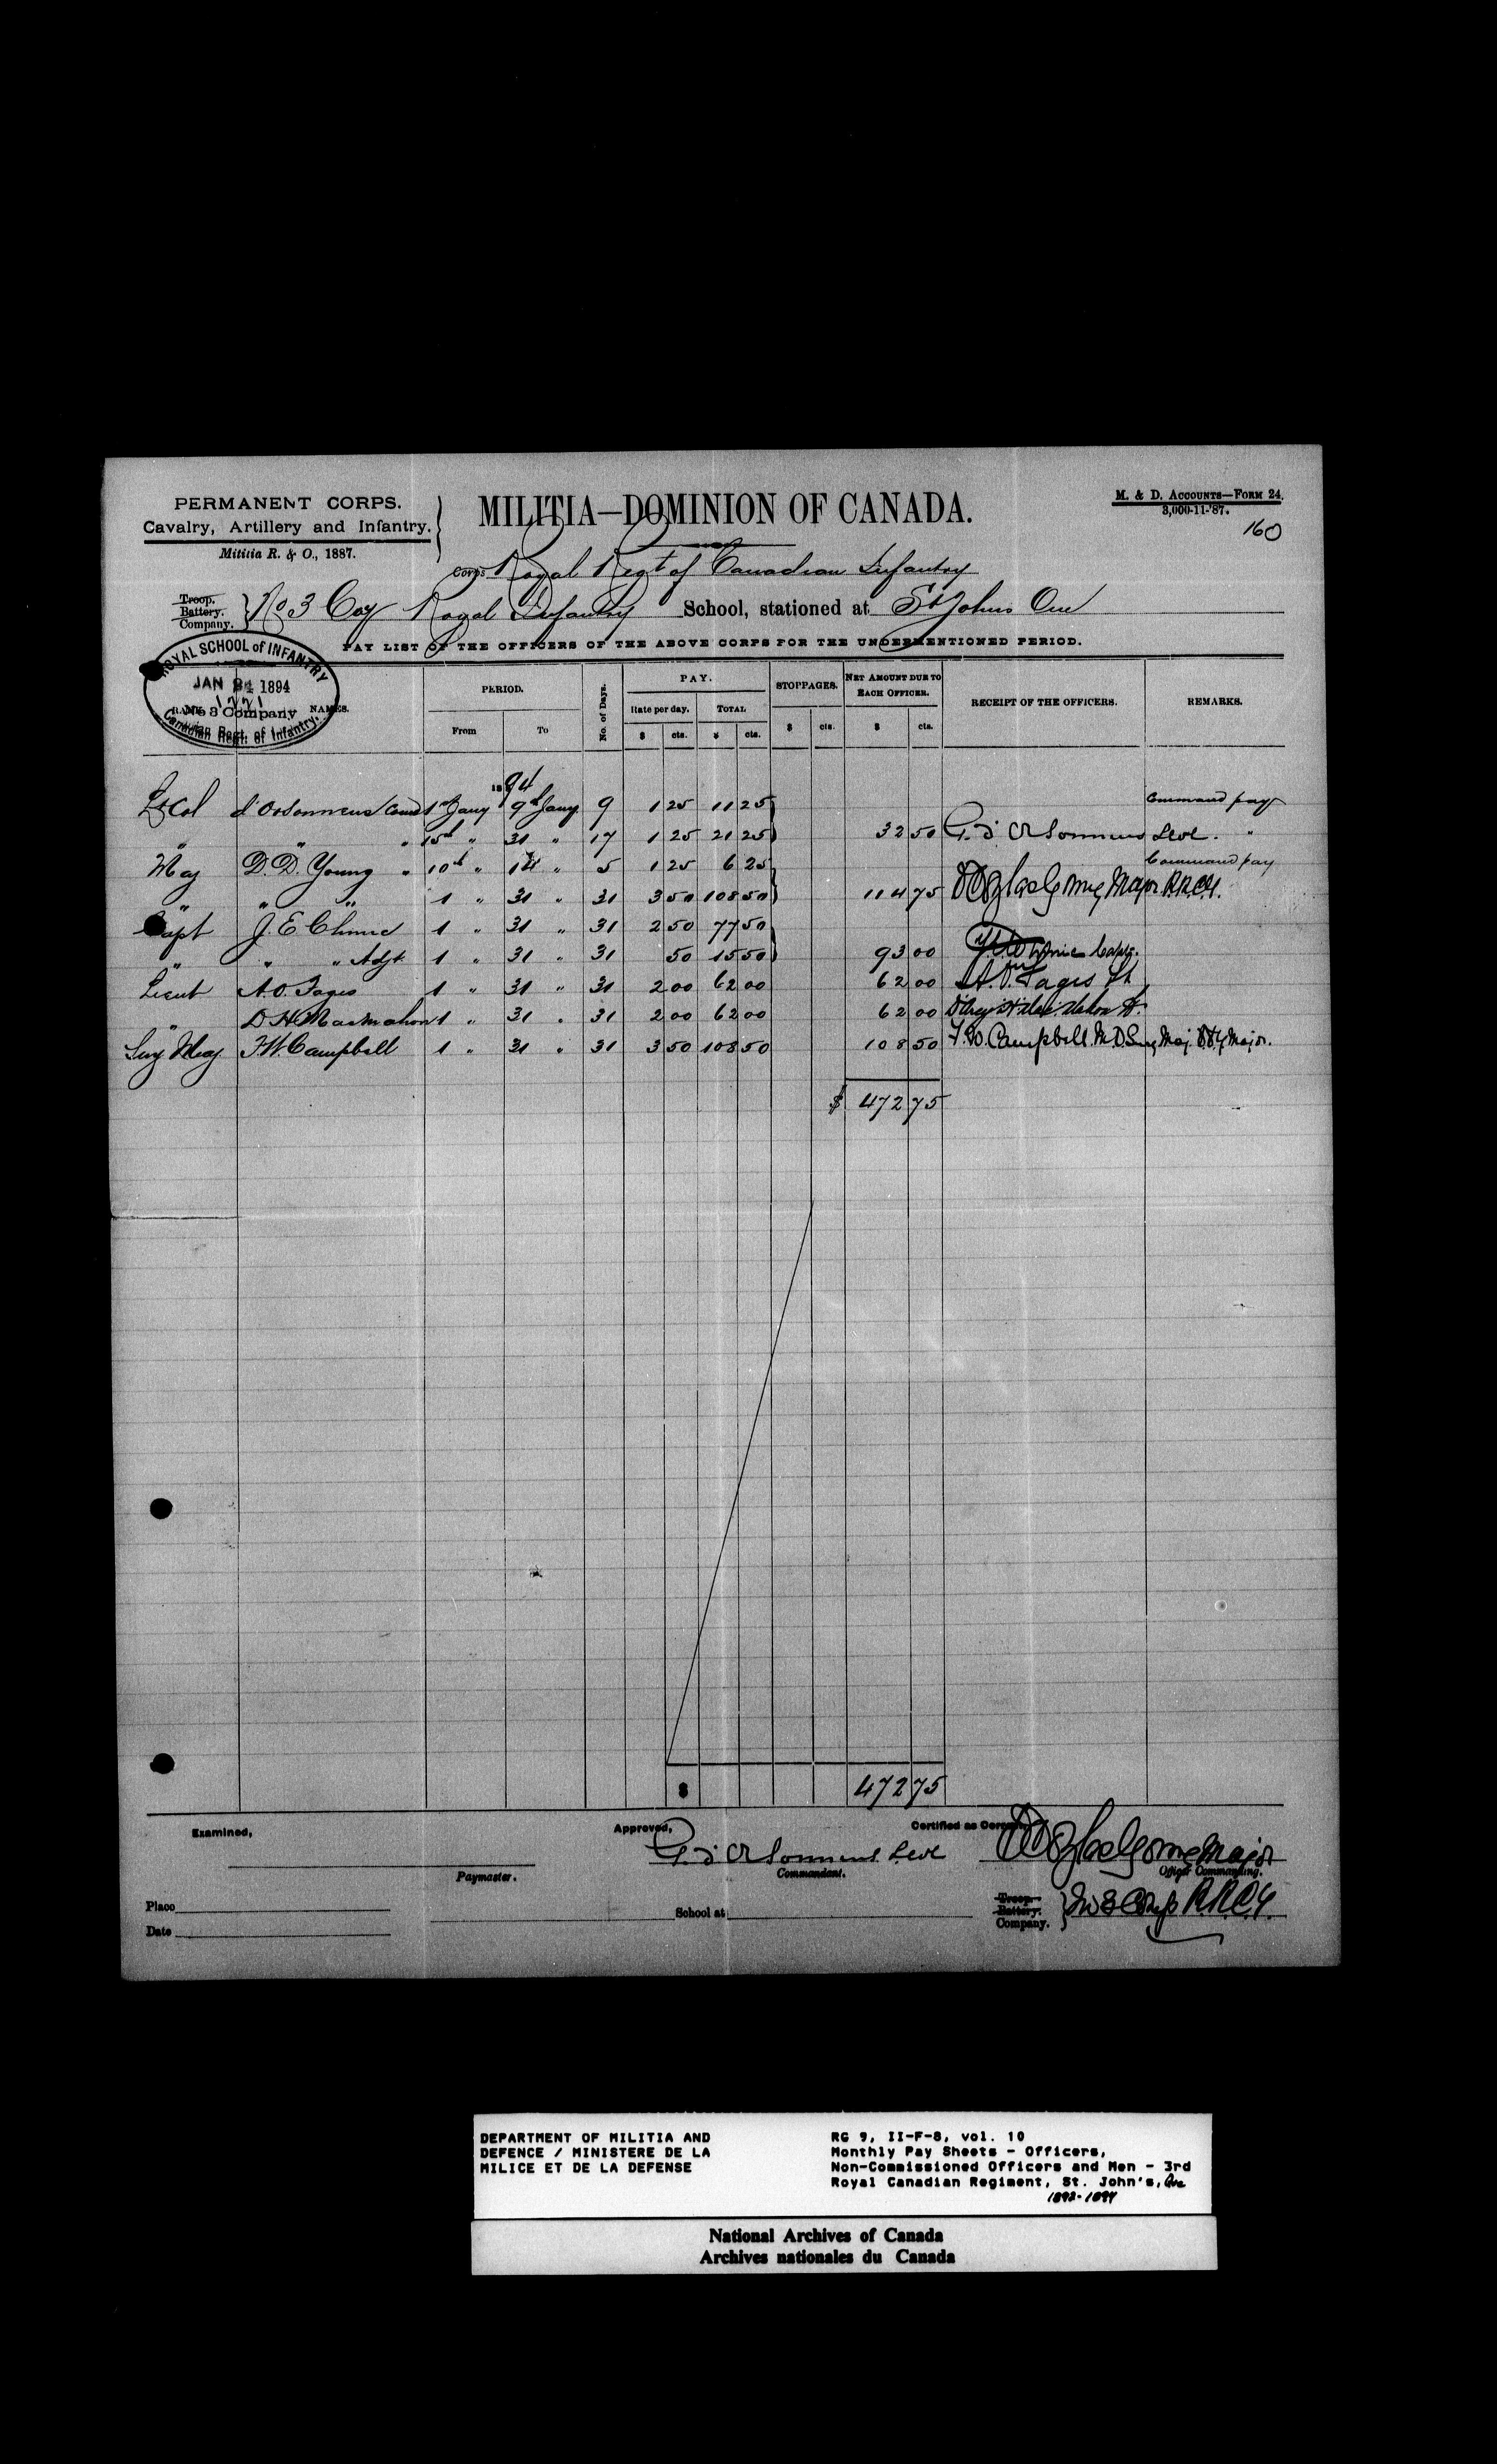 PERMANENT CORPS.
Cavalry, Artillery and Infantry.
Militia R. & O., 1887.
MILITIA—DOMINION OF CANADA.
M. & D. ACCOUNTS—FORM 24.
3,000-11-'87.
160
Corps Royal Regt of Canadian Infantry
Troop.
Battery.
Company.
No 3 Coy Royal Infantry School, stationed at St Johns Que
PAY LIST OF THE OFFICERS OF THE ABOVE CORPS FOR THE UNDERMENTIONED PERIOD.
ROYAL SCHOOL of INFANTRY
JAN 1894
1221
No 3 Company
Canadian Regt. of Infantry.
RANK. NAMES. PERIOD. From To No. of Days. PAY. Rate per day. TOTAL. $ cts. $ cts. STOPPAGES. $ cts. NET AMOUNT DUE TO EACH OFFICER. $ cts. RECEIPT OF THE OFFICERS. REMARKS.
1894
Lt Col d'Orsonnens Comd 1st Jany 9th Jany 9 1 25 11 25 Command pay
" " " 15th " 31 " 17 1 25 21 25 32 50 G. d'Orsonnens Lt Col. "
Maj D. D. Young " 10th " 14 " 5 1 25 6 25 Command pay
" " " 1 " 31 " 31 3 50 108 50 114 75 Major R.R.C.I.
Capt J. E. Chinic 1 " 31 " 31 2 50 77 50
" " " Adjt 1 " 31 " 31 50 15 50 93 00 Chinic Capt.
Lieut A. O. Fages 1 " 31 " 31 2 00 62 00 62 00 A. O. Fages Lt
" D H MacMahon 1 " 31 " 31 2 00 62 00 62 00
Surg Maj F. W. Campbell 1 " 31 " 31 3 50 108 50 108 50 F. W. Campbell M.D. Surg Maj. Major.
$ 472 75
$ 472 75
Examined,
Paymaster.
Approved,
G. d'Orsonnens Lt Col
Commandant.
Certified as Correct,
Major
Officer Commanding.
Place
Date
School at
Troop.
Battery.
Company.
No 3 Comp R.R.C.I.
DEPARTMENT OF MILITIA AND
DEFENCE / MINISTERE DE LA
MILICE ET DE LA DEFENSE
RG 9, II-F-8, vol. 10
Monthly Pay Sheets - Officers,
Non-Commissioned Officers and Men - 3rd
Royal Canadian Regiment, St. John's, Que
1892-1894
National Archives of Canada
Archives nationales du Canada